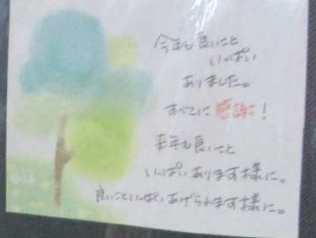 今年も良いこと
いっぱい
ありました。
すべてに感謝!
来年も良いこと
いっぱいあります様に。
良いこといっぱいあげられます様に。